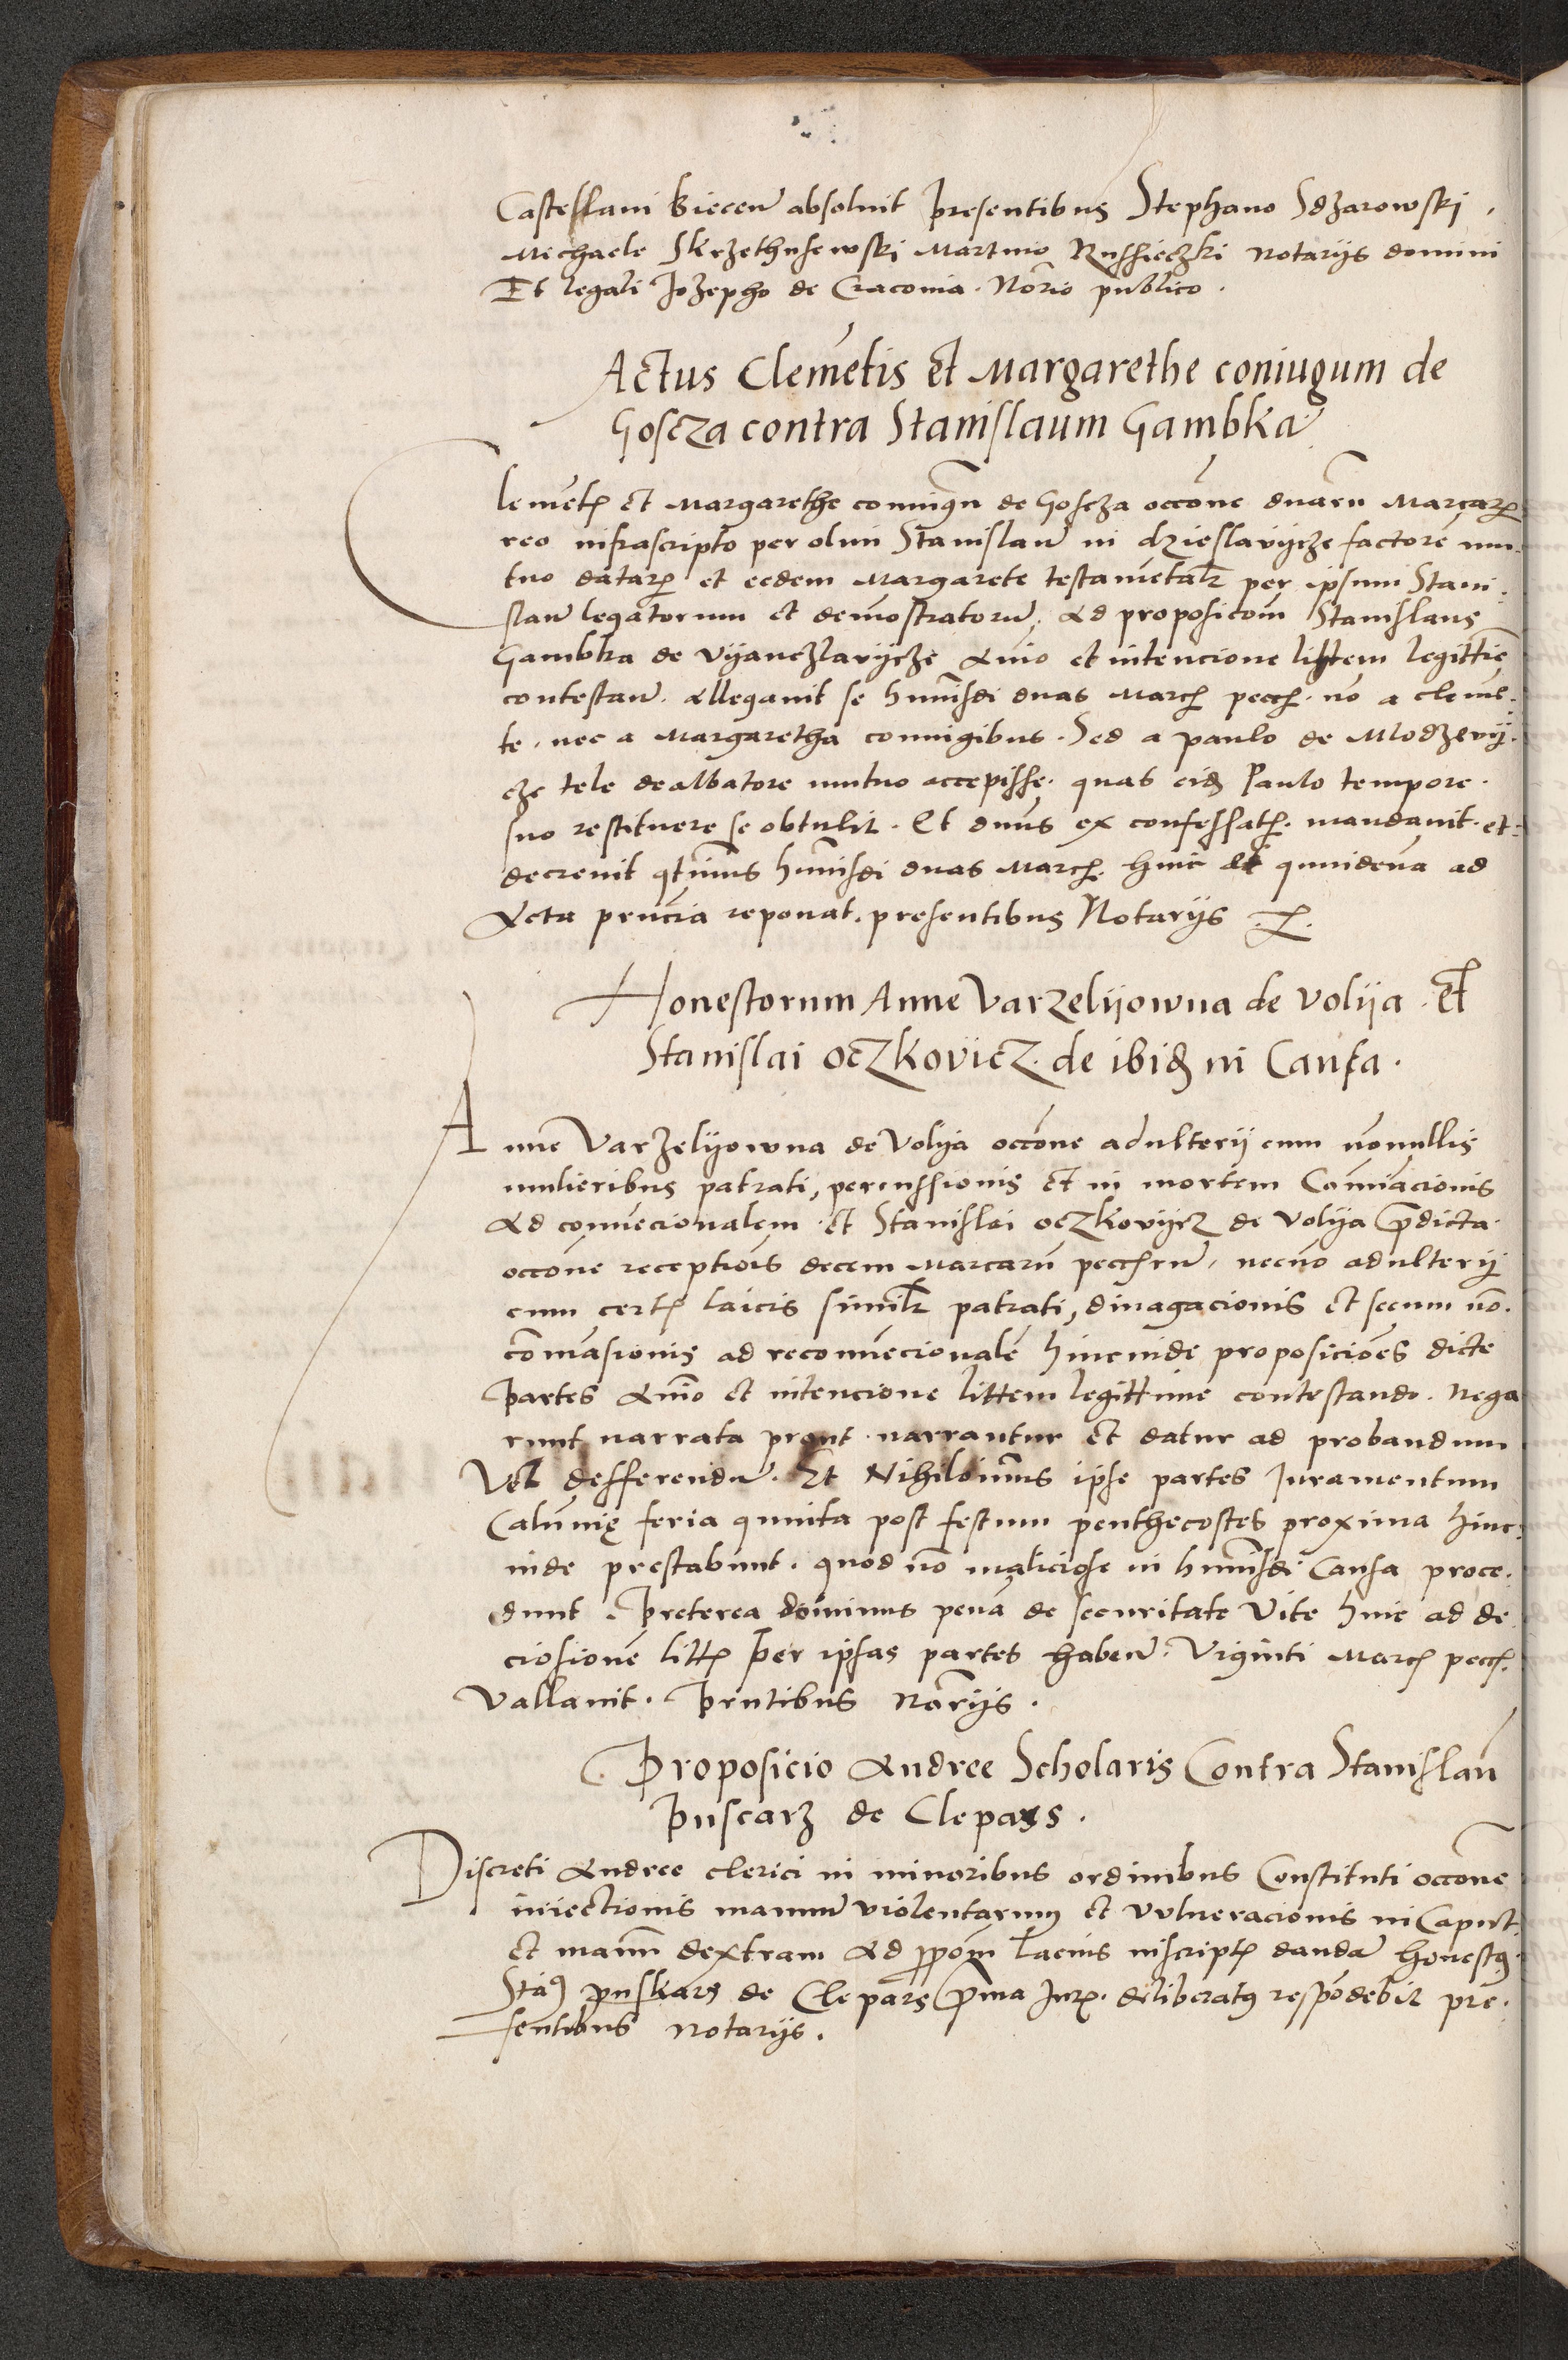 Castellani Biecen̄ absoluit presentibus Stephano Sdzarowski,
Michaele Skrzethusewski Martino Russieczki notarijs domini
Et legali Jozepho de Cracouia. Nōrio publico.
Actus Clemētis et Margarethe coniugum de
Goscza contra Stanislaum Gambka
Clemētꝭ et Margarethe coniugū de Goscza occōne duarū Marcarꝝ
reo infrascripto per olim Stanislaū in dzieslavijcze factorē mu-
tuo datarꝝ et eedem Margarete testamētalr̄ per ipsum Stani-
slaū legatorum et demōstratorū. Ad proposicōm Stanislaus
Gambka de vijanczlavijcze Anīo et intencione littem legittīe
contestan̄. Allegauit se hmōi duas Marcꝭ peccꝭ. nō a clemē-
te, nec a Margaretha coniugibus. Sed a paulo de Modzevij-
cze tele dealbatore mutuo accepisse. quas eidꝫ Paulo tempore.
suo restituere se obtulit. Et dnūs ex confessatꝭ. mandauit. et
decreuit qtīnus hmōi duas Marcꝭ. hinc ad quindenā ad
Acta prūcia reponat. presentibus Notarijs
Honestorum Anne Varzelijowna de volija. Et
Stanislai oczkovicz. de ibidꝫ in Causa.
Anne Varzelijowna de Volija occōne adulterij cum nōnullis
mulieribus patrati, percussionis et in mortem Cōmīacionis
Ad conuēcionalem. et Stanislai oczkovijcz de Volija p̄dicta.
occōne receptiōis decem Marcarū peccꝭrū, necnō adulterij
cum certꝭ laicis similr̄ patrati, diuagacionis et secum nō.
cōmāsionis ad reconuēcionalē hincinde proposiciōes dicte
Partes Anīo et intencione littem legittime contestando. nega
runt narrata prout narrantur et datur ad probandum
Vel defferendū. Et Nihilōinus ipse partes Juramentum
Calūnię feria quinta post festum penthecostes proxima hinc-
inde prestabunt. quod nō maliciose in hmōi Causa proce-
dunt. Preterea dominus penā de securitate Vite hinc ad de
ciosionē littꝭ per ipsas partes haben̄. Viginti Marcꝭ peccꝭ.
Vallauit. Prntibus Nōrijs.
Proposicio Andree Scholaris Contra Stanislaū
Puscarz de Clepars.
Discreti Andree clerici in minoribus ordinibus Constituti occōne
iniectionis manuū violentarum et vulneracionis in Caput
et manū dextram Ad ppōm lacius inscriptꝭ dandā Honestꝰ
Stāꝰ puskars de Clepars p̄ma Jurꝭ. deliberatꝰ respōdebit pre-
sentibus notarijs.